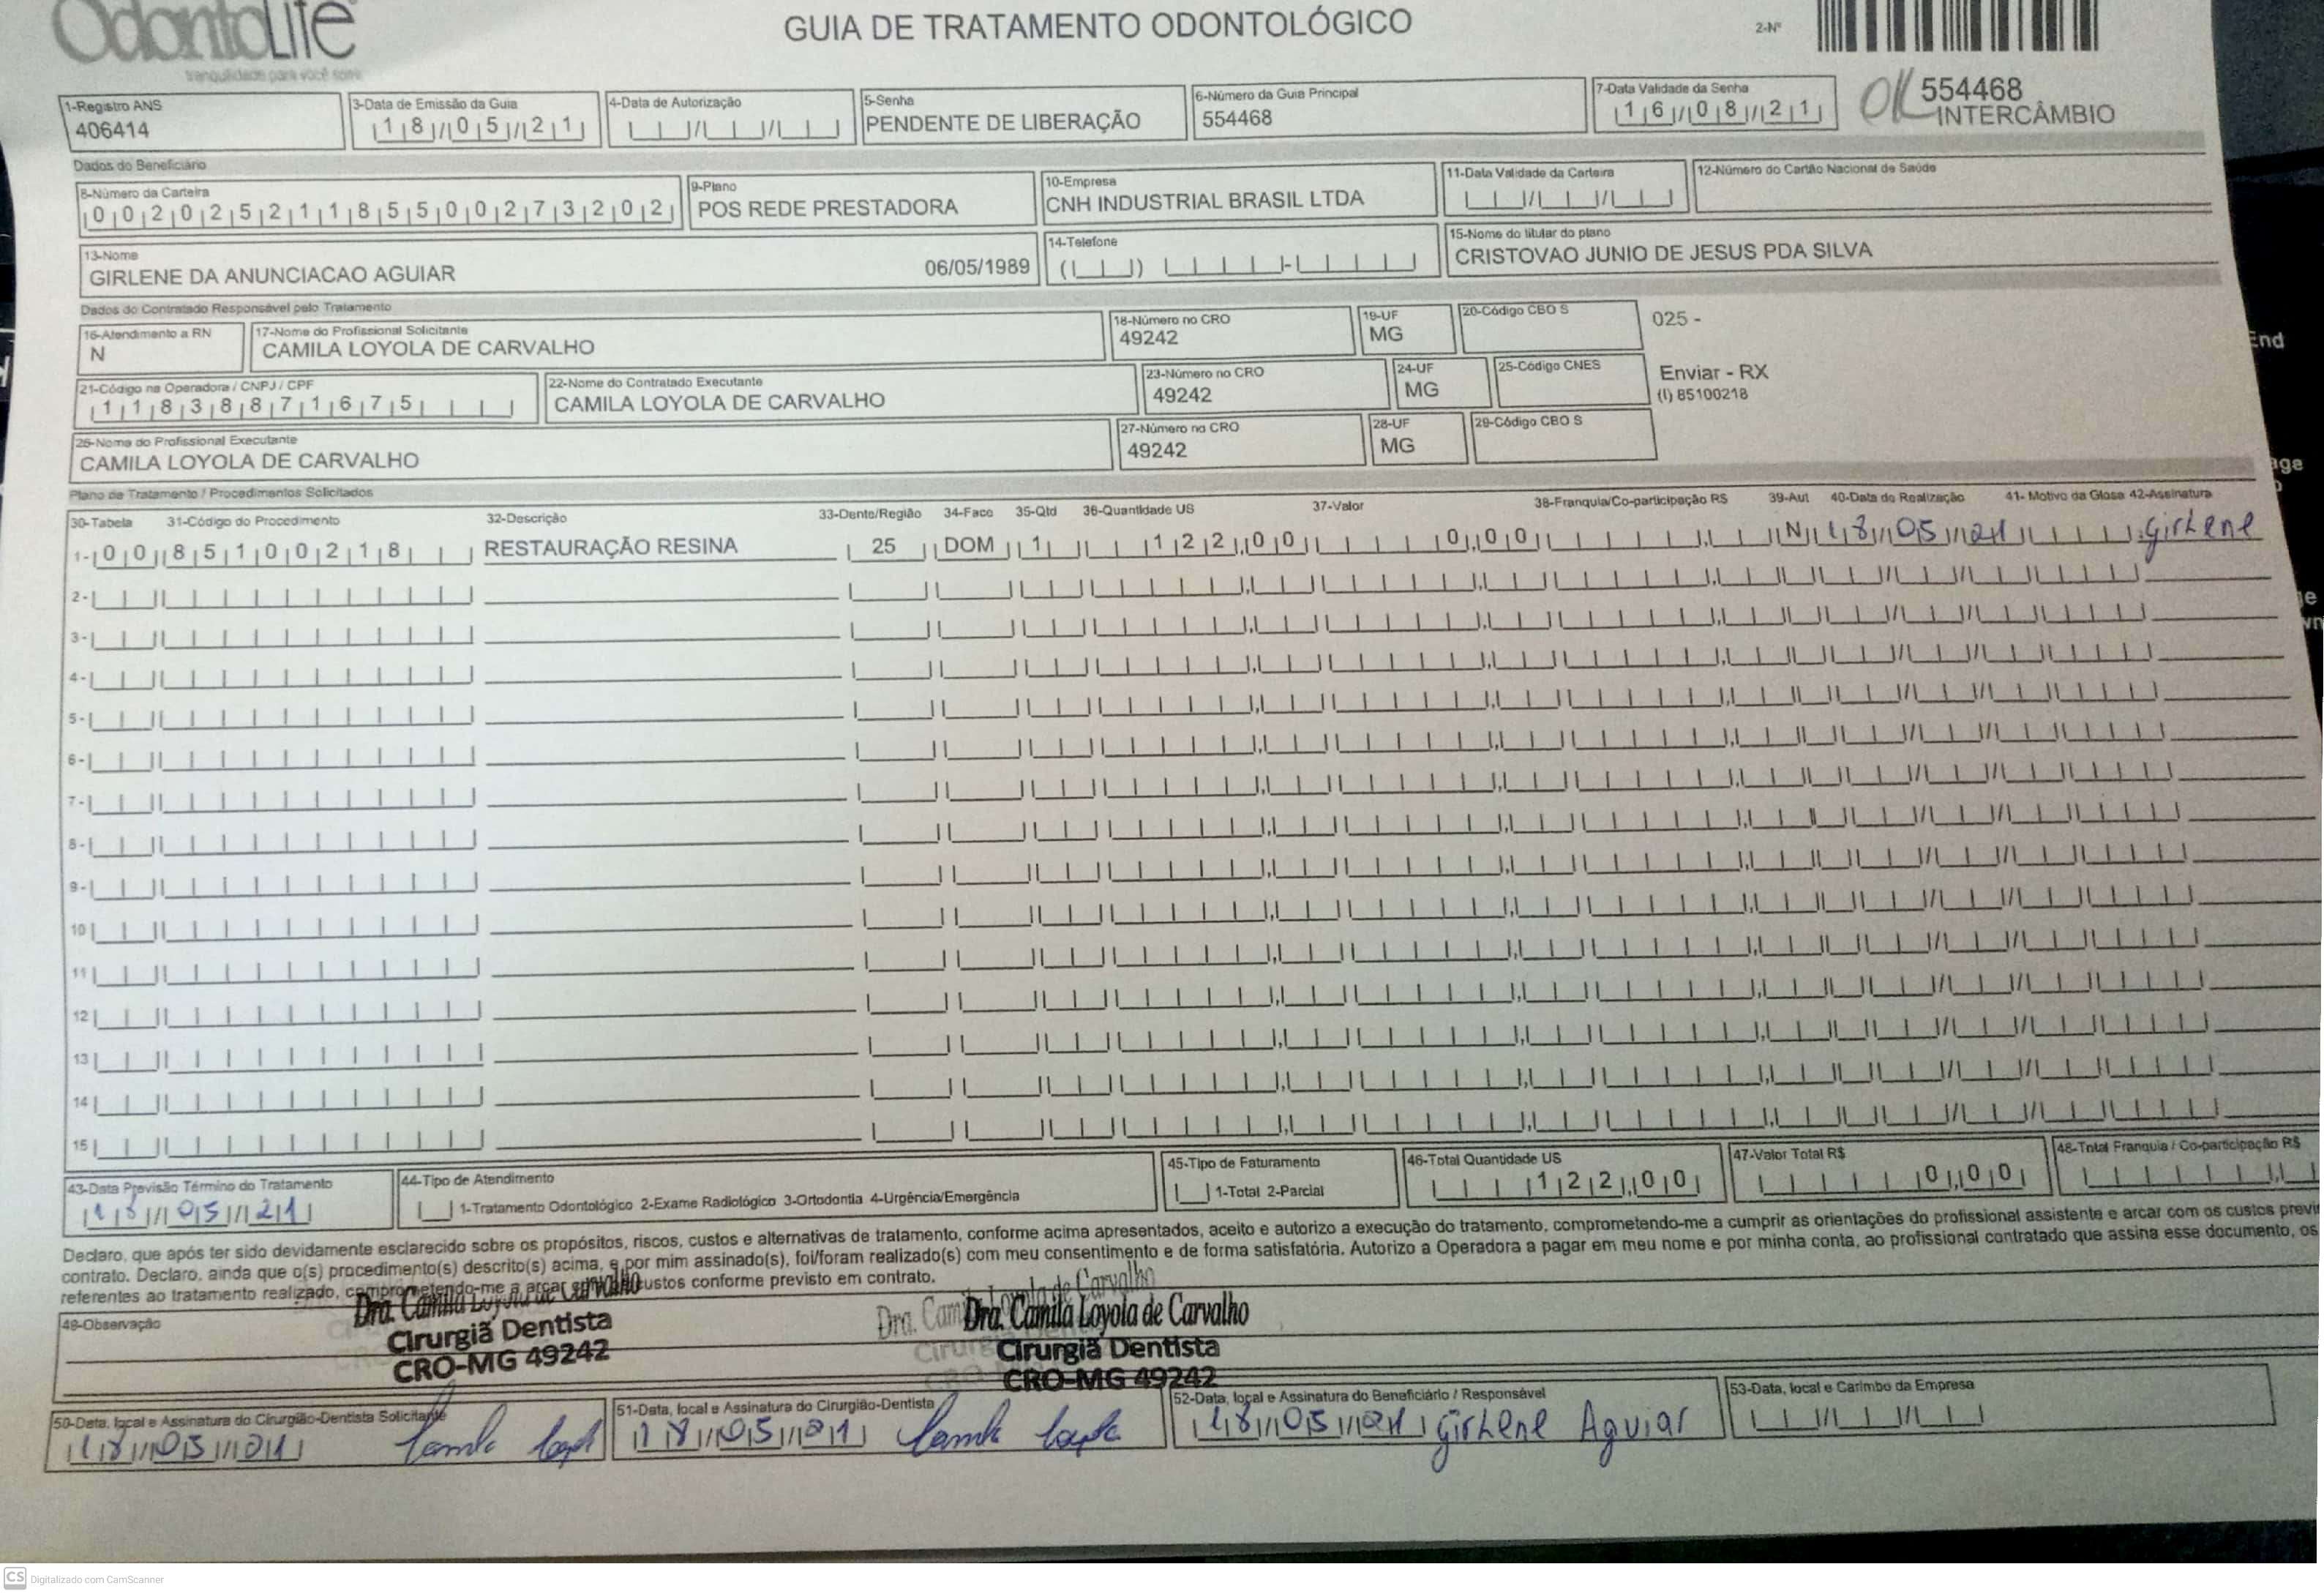 OdontoLife
tranquilidade para você sorrir
GUIA DE TRATAMENTO ODONTOLÓGICO
2-Nº
554468
OK INTERCÂMBIO
1-Registro ANS
406414
3-Data de Emissão da Guia
18/05/21
4-Data de Autorização
5-Senha
PENDENTE DE LIBERAÇÃO
6-Número da Guia Principal
554468
7-Data Validade da Senha
16/08/21
Dados do Beneficiário
8-Número da Carteira
00202521185500273202
9-Plano
POS REDE PRESTADORA
10-Empresa
CNH INDUSTRIAL BRASIL LTDA
11-Data Validade da Carteira
12-Número do Cartão Nacional de Saúde
13-Nome
GIRLENE DA ANUNCIACAO AGUIAR 06/05/1989
14-Telefone
15-Nome do titular do plano
CRISTOVAO JUNIO DE JESUS PDA SILVA
Dados do Contratado Responsável pelo Tratamento
16-Atendimento a RN
N
17-Nome do Profissional Solicitante
CAMILA LOYOLA DE CARVALHO
18-Número no CRO
49242
19-UF
MG
20-Código CBO S
025 -
21-Código na Operadora / CNPJ / CPF
11838871675
22-Nome do Contratado Executante
CAMILA LOYOLA DE CARVALHO
23-Número no CRO
49242
24-UF
MG
25-Código CNES
Enviar - RX
(I) 85100218
26-Nome do Profissional Executante
CAMILA LOYOLA DE CARVALHO
27-Número no CRO
49242
28-UF
MG
29-Código CBO S
Plano de Tratamento / Procedimentos Solicitados
30-Tabela 31-Código do Procedimento 32-Descrição 33-Dente/Região 34-Face 35-Qtd 36-Quantidade US 37-Valor 38-Franquia/Co-participação R$ 39-Aut 40-Data de Realização 41- Motivo da Glosa 42-Assinatura
1- 00 85100218 RESTAURAÇÃO RESINA 25 DOM 1 122,00 0,00 N 18/05/21 Girlene
2-
3-
4-
5-
6-
7-
8-
9-
10
11
12
13
14
15
43-Data Previsão Término do Tratamento
18/05/21
44-Tipo de Atendimento
1-Tratamento Odontológico 2-Exame Radiológico 3-Ortodontia 4-Urgência/Emergência
45-Tipo de Faturamento
1-Total 2-Parcial
46-Total Quantidade US
122,00
47-Valor Total R$
0,00
48-Total Franquia / Co-participação R$
Declaro, que após ter sido devidamente esclarecido sobre os propósitos, riscos, custos e alternativas de tratamento, conforme acima apresentados, aceito e autorizo a execução do tratamento, comprometendo-me a cumprir as orientações do profissional assistente e arcar com os custos previ
contrato. Declaro, ainda que o(s) procedimento(s) descrito(s) acima, e por mim assinado(s), foi/foram realizado(s) com meu consentimento e de forma satisfatória. Autorizo a Operadora a pagar em meu nome e por minha conta, ao profissional contratado que assina esse documento, os
referentes ao tratamento realizado, comprometendo-me a arcar custos conforme previsto em contrato.
49-Observação
Dra. Camila Loyola de Carvalho
Cirurgiã Dentista
CRO-MG 49242
Dra. Camila Loyola de Carvalho
Cirurgiã Dentista
CRO-MG 49242
50-Data, local e Assinatura do Cirurgião-Dentista Solicitante
18/05/21
51-Data, local e Assinatura do Cirurgião-Dentista
18/05/21
52-Data, local e Assinatura do Beneficiário / Responsável
18/05/21 Girlene Aguiar
53-Data, local e Carimbo da Empresa
End
CS Digitalizado com CamScanner